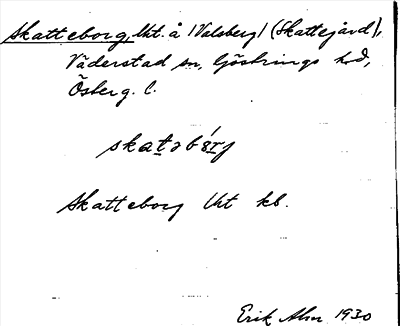 Skatteborg, Uht. å (Valsberg) (Skattegård),
Väderstad sn, Göstrings hd,
Österg. l.
skatəbårj
Skatteborg Uht kb.
Erik Alm 1930